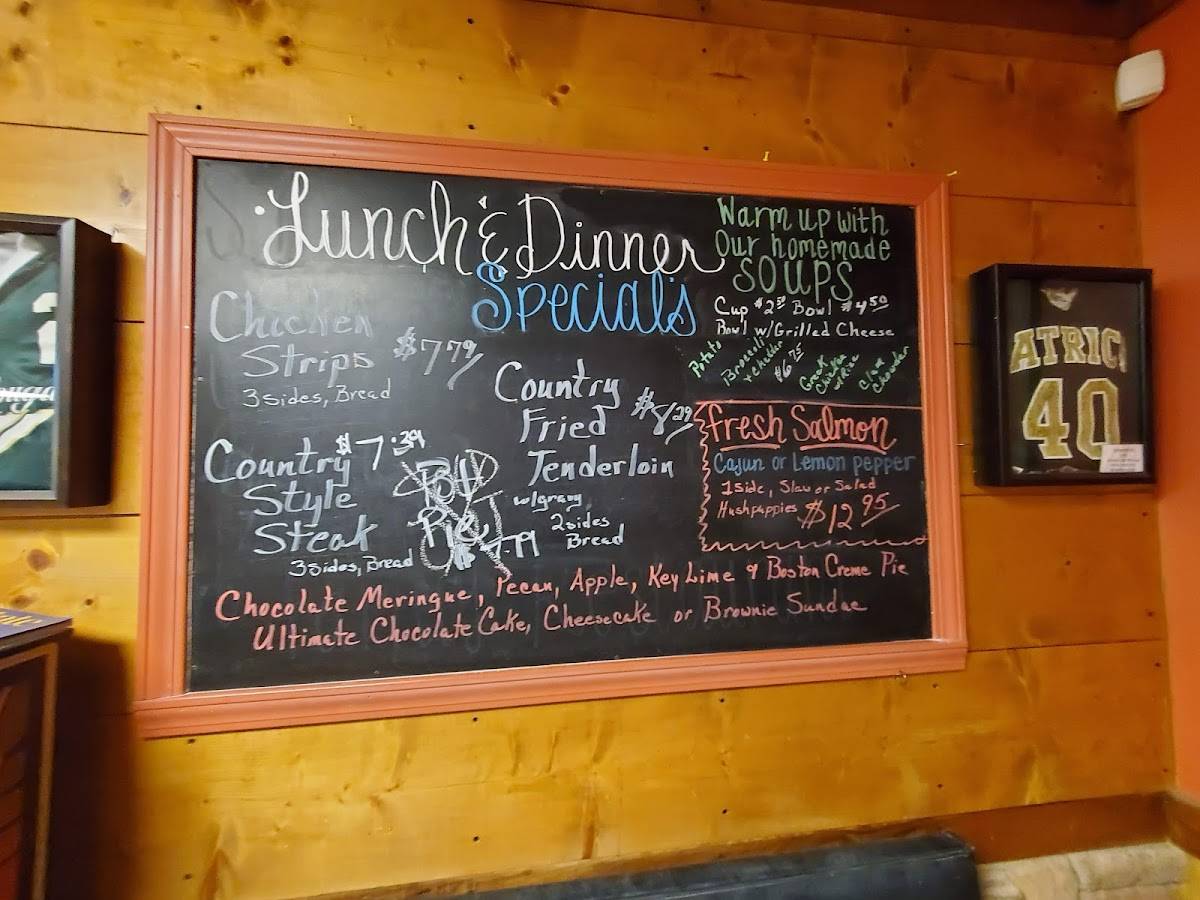 Lunch & Dinner
Special's
Warm up with
Our homemade
SOUPS
Cup $2.50 Bowl $4.50
Bowl w/Grilled Cheese
$6.75
Potato
Broccoli
+ Chedder
Greek
Chicken
w Rice
Clam
Chowder
Chicken
Strips $7.79/
3 sides, Bread
Country
Fried $8.29
Tenderloin
w/gravy,
2 sides
Bread
Country $7.39
Style
Steak
3 Sides, Bread
Pot
Pie
$7.79
Fresh Salmon
Cajun or Lemon pepper
1 Side, Slaw or Salad
Hushpuppies $12.95
Chocolate Meringue, Pecan, Apple, Key Lime & Boston Creme Pie
Ultimate Chocolate Cake, Cheesecake or Brownie Sundae
ATRIC
40